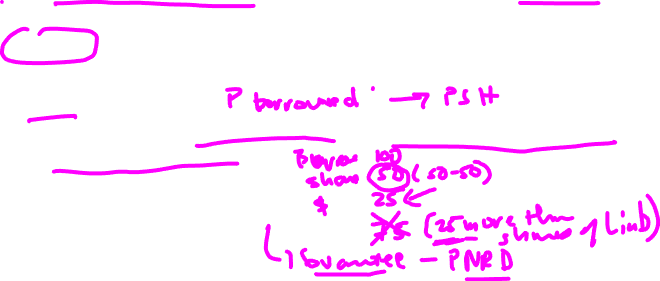 P borrowed → PSH
Borrow 100
share 50 (50-50)
$ 25 ←
75 (25 more than share of Liab)
Guarantee - PNRD